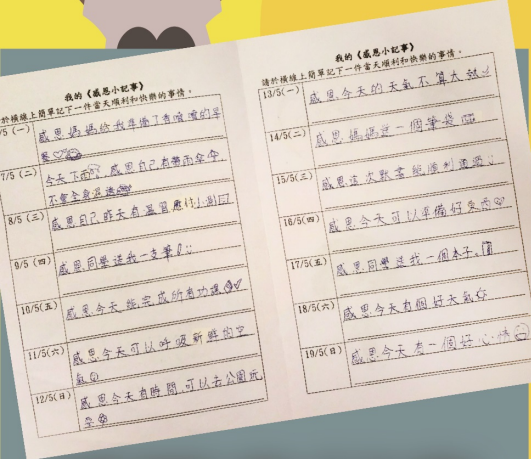 我的《感恩小記事》
請於橫線上簡單記下一件當天順利和快樂的事情。
/5 (一) 感恩媽媽給我準備了香噴噴的早
餐
7/5 (二) 今天下雨,感恩自己有帶雨傘
不會全身濕透
8/5 (三) 感恩自己昨天有溫習應付小測
9/5 (四) 感恩同學送我一支筆
10/5(五) 感恩今天能完成所有功課
11/5(六) 感恩今天可以呼吸新鮮的空
氣
12/5(日) 感恩今天有時間,可以去公園玩
我的《感恩小記事》
請於橫線上簡單記下一件當天順利和快樂的事情。
13/5(一) 感恩今天的天氣不算太熱
14/5(二) 感恩媽媽送一個筆袋
15/5(三) 感恩這次默書能順利通過
16/5(四) 感恩今天可以準備好東西
17/5(五) 感恩同學送我一個本子。
18/5(六) 感恩今天有個好天氣
19/5(日) 感恩今天有一個好心情